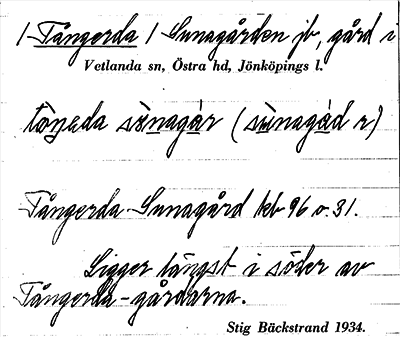 / Tångerda / Sunagården jb, gård i
Vetlanda sn, Östra hd, Jönköpings l.
sùnagår (sùnagåd r)
Tångerda Sunagård kb 96 o. 31.
Ligger längst i söder av
Tångerda-gårdarna.
Stig Bäckstrand 1934.